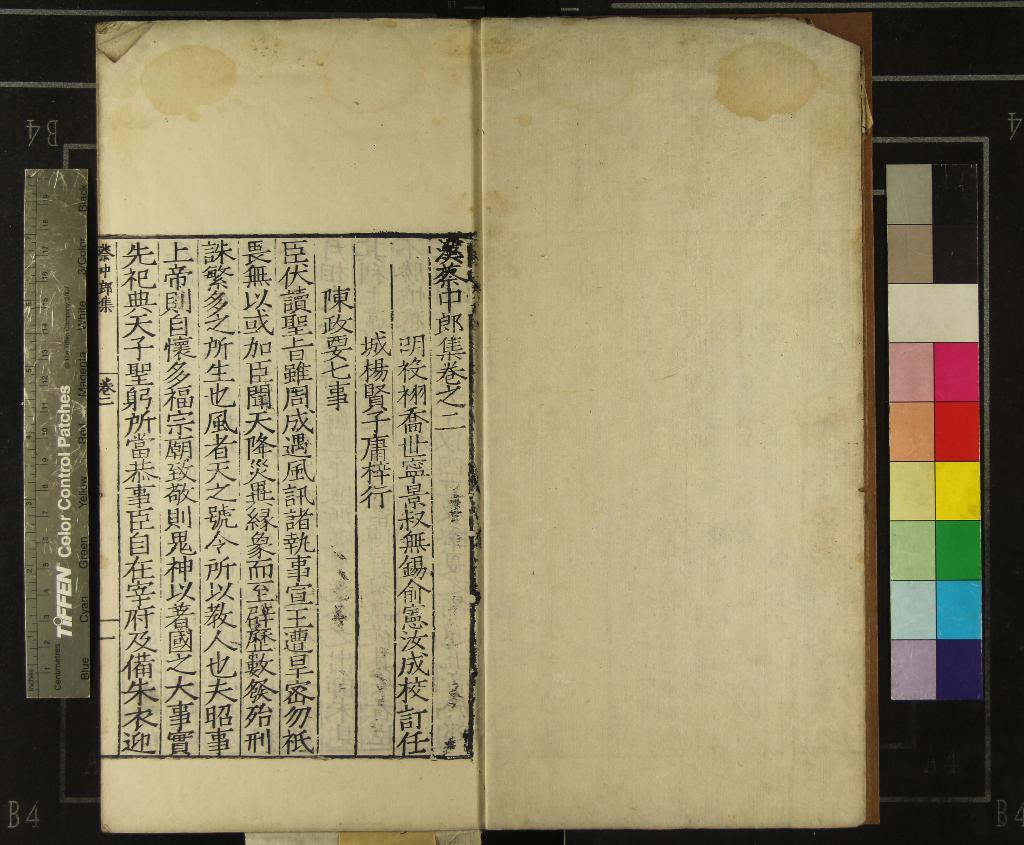 漢蔡中郎集卷之二
明後栁喬世寧景叔無錫俞憲汝成校訂任
城楊賢子庸梓行
陳政要七事
臣伏讀聖旨雖周成遇風訊諸執事宣王遭旱宻勿祗
畏無以或加臣聞天降災異緣象而至辟歷數發殆刑
誅繁多之所生也風者天之號令所以教人也夫昭事
上帝則自懷多福宗廟致敬則鬼神以著國之大事實
先祀典天子聖躬所當恭事臣自在宰府及備朱衣迎
蔡中郎集
卷二
一
TIFFEN Color Control Patches
Blue
Cyan
Green
Yellow
Red
Magenta
White
3/Color
Black
Centimetres
Inches
B4
B4
B4
A4